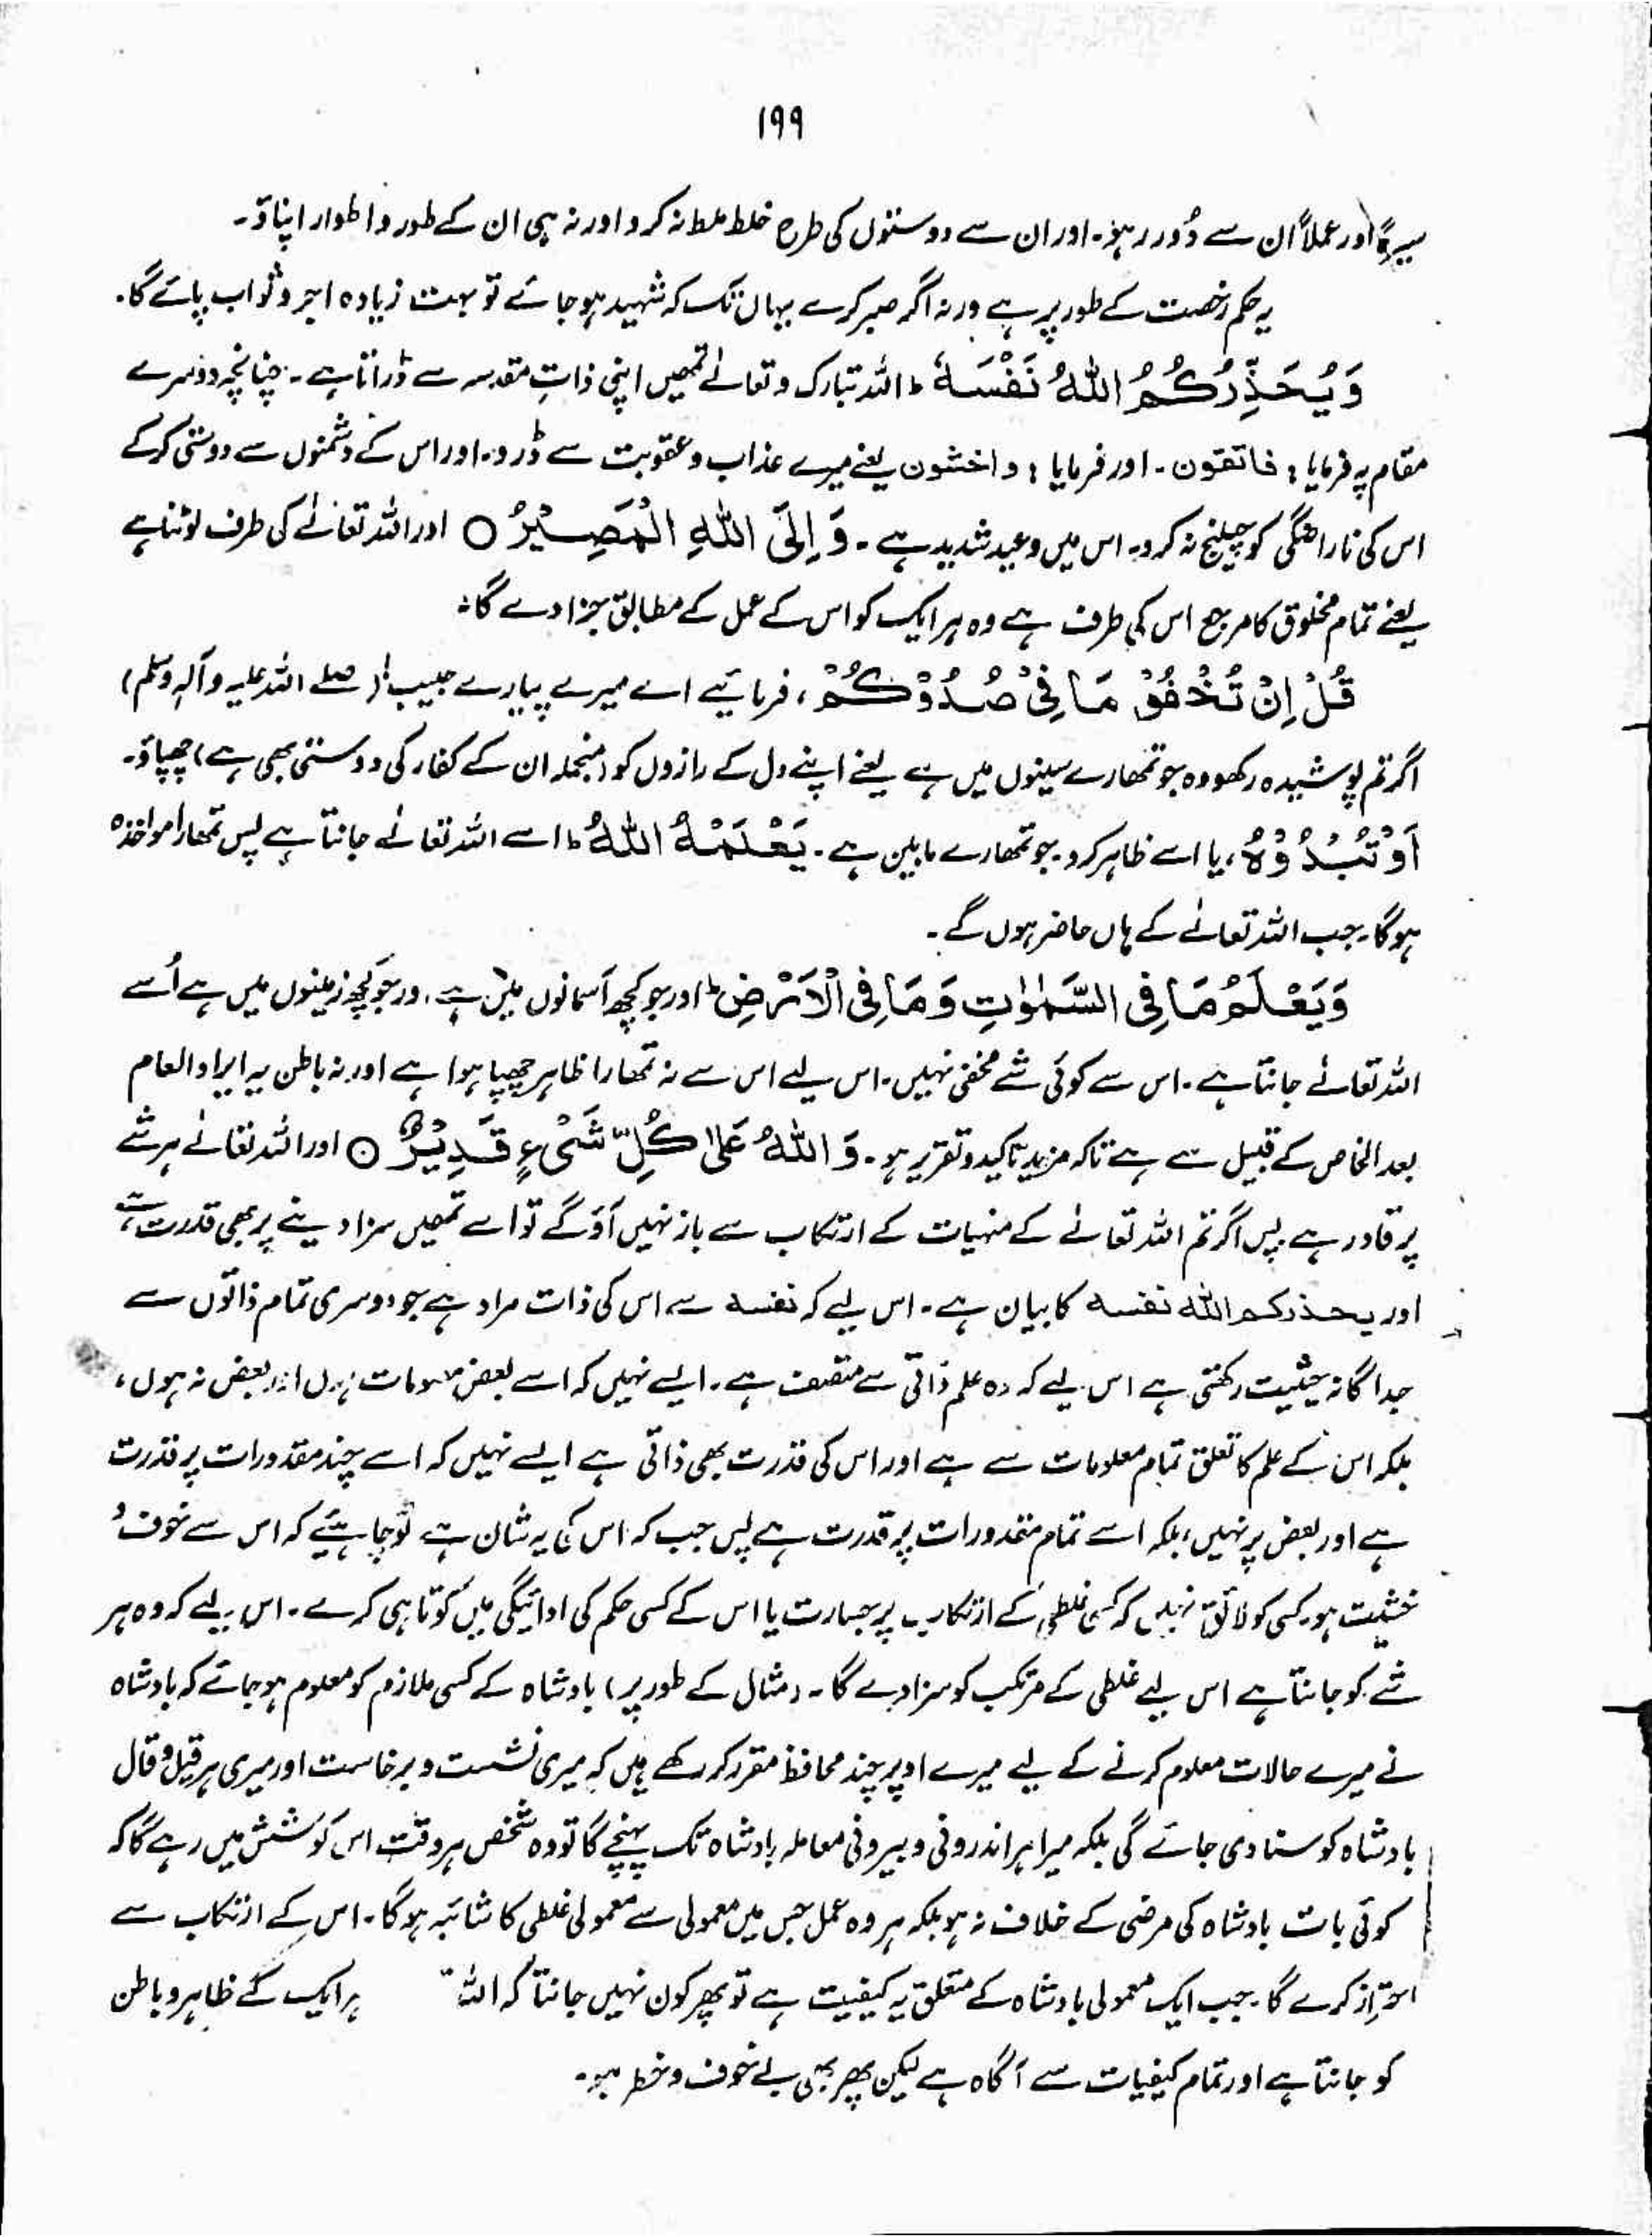 ۱۹۹
سیرۃً اور عملاً ان سے دُور رہو۔ اور ان سے دوستوں کی طرح خلط ملط نہ کرو اور نہ ہی ان کے طور و اطوار اپناؤ۔
یہ حکم رخصت کے طور پر ہے ورنہ اگر صبر کرے یہاں تک کہ شہید ہو جائے تو بہت زیادہ اجر و ثواب پائے گا۔
وَيُحَذِّرُكُمُ اللّٰهُ نَفْسَهٗ ط اللہ تبارک و تعالےٰ تمھیں اپنی ذاتِ مقدسہ سے ڈراتا ہے۔ چنانچہ دوسرے
مقام پہ فرمایا ؛ فاتقون۔ اور فرمایا ؛ واخشون یعنے میرے عذاب و عقوبت سے ڈرو۔ اور اس کے دشمنوں سے دوستی کرکے
اس کی ناراضگی کو چیلنج نہ کرو۔ اس میں وعید شدید ہے۔ وَاِلَى اللّٰهِ الْمَصِيْرُ ○ اور اللہ تعالےٰ کی طرف لوٹنا ہے
یعنے تمام مخلوق کا مرجع اس کی طرف ہے وہ ہر ایک کو اس کے عمل کے مطابق جزا دے گا۔
قُلْ اِنْ تُخْفُوْ مَا فِىْ صُدُوْكُمْ ، فرمائیے اے میرے پیارے حبیب! (صلے اللہ علیہ وآلہٖ وسلم)
اگر تم پوشیدہ رکھو وہ جو تمھارے سینوں میں ہے یعنے اپنے دل کے رازوں کو (منجملہ ان کے کفار کی دوستی بھی ہے) چھپاؤ۔
اَوْ تُبْدُوْهُ ، یا اسے ظاہر کرو۔ جو تمھارے مابین ہے۔ يَعْلَمْهُ اللّٰهُ ط اسے اللہ تعالےٰ جانتا ہے پس تمھارا مواخذہ
ہوگا۔ جب اللہ تعالےٰ کے ہاں حاضر ہوں گے۔
وَيَعْلَمُ مَا فِى السَّمٰوٰتِ وَمَا فِى الْاَرْضِ ط اور جو کچھ آسمانوں میں ہے، ور جو کچھ زمینوں میں ہے اُسے
اللہ تعالےٰ جانتا ہے۔ اس سے کوئی شے مخفی نہیں۔ اس لیے اس سے نہ تمھارا ظاہر چھپا ہوا ہے اور نہ باطن یہ ایراد العام
بعد الخاص کے قبیل سے ہے تاکہ مزید تاکید و تقریر ہو۔ وَاللّٰهُ عَلٰى كُلِّ شَىْءٍ قَدِيْرٌ ○ اور اللہ تعالےٰ ہر شے
پر قادر ہے پس اگر تم اللہ تعالےٰ کے منہیات کے ارتکاب سے باز نہیں آؤ گے تو اسے تمھیں سزا دینے پر بھی قدرت ہے،
اور يحذركم الله نفسه کا بیان ہے۔ اس لیے کہ نفسہ سے اس کی ذات مراد ہے جو دوسری تمام ذاتوں سے
جداگانہ حیثیت رکھتی ہے اس لیے کہ وہ علم ذاتی سے متصف ہے۔ ایسے نہیں کہ اسے بعض معلومات ہوں اور بعض نہ ہوں،
بلکہ اس کے علم کا تعلق تمام معلومات سے ہے اور اس کی قدرت بھی ذاتی ہے ایسے نہیں کہ اسے چند مقدورات پر قدرت
ہے اور بعض پر نہیں، بلکہ اسے تمام مقدورات پر قدرت ہے پس جب کہ اس کی یہ شان ہے تو چاہیئے کہ اس سے خوف و
خشیت ہو۔ کسی کو لائق نہیں کہ کسی غلطی کے ارتکاب پر جسارت یا اس کے کسی حکم کی ادائیگی میں کوتاہی کرے۔ اس لیے کہ وہ ہر
شے کو جانتا ہے اس لیے غلطی کے مرتکب کو سزا دے گا۔ (مثال کے طور پر) بادشاہ کے کسی ملازم کو معلوم ہو جائے کہ بادشاہ
نے میرے حالات معلوم کرنے کے لیے میرے اوپر چند محافظ مقرر کر رکھے ہیں کہ میری نشست و برخاست اور میری ہر قیل و قال
بادشاہ کو سنا دی جائے گی بلکہ میرا ہر اندرونی و بیرونی معاملہ بادشاہ تک پہنچے گا تو وہ شخص ہر وقت اس کوشش میں رہے گا کہ
کوئی بات بادشاہ کی مرضی کے خلاف نہ ہو بلکہ ہر وہ عمل جس میں معمولی سے معمولی غلطی کا شائبہ ہوگا۔ اس کے ارتکاب سے
احتراز کرے گا۔ جب ایک معمولی بادشاہ کے متعلق یہ کیفیت ہے تو پھر کون نہیں جانتا کہ اللہ ہر ایک کے ظاہر و باطن
کو جانتا ہے اور تمام کیفیات سے آگاہ ہے لیکن پھر بھی بے خوف و خطر ہو۔